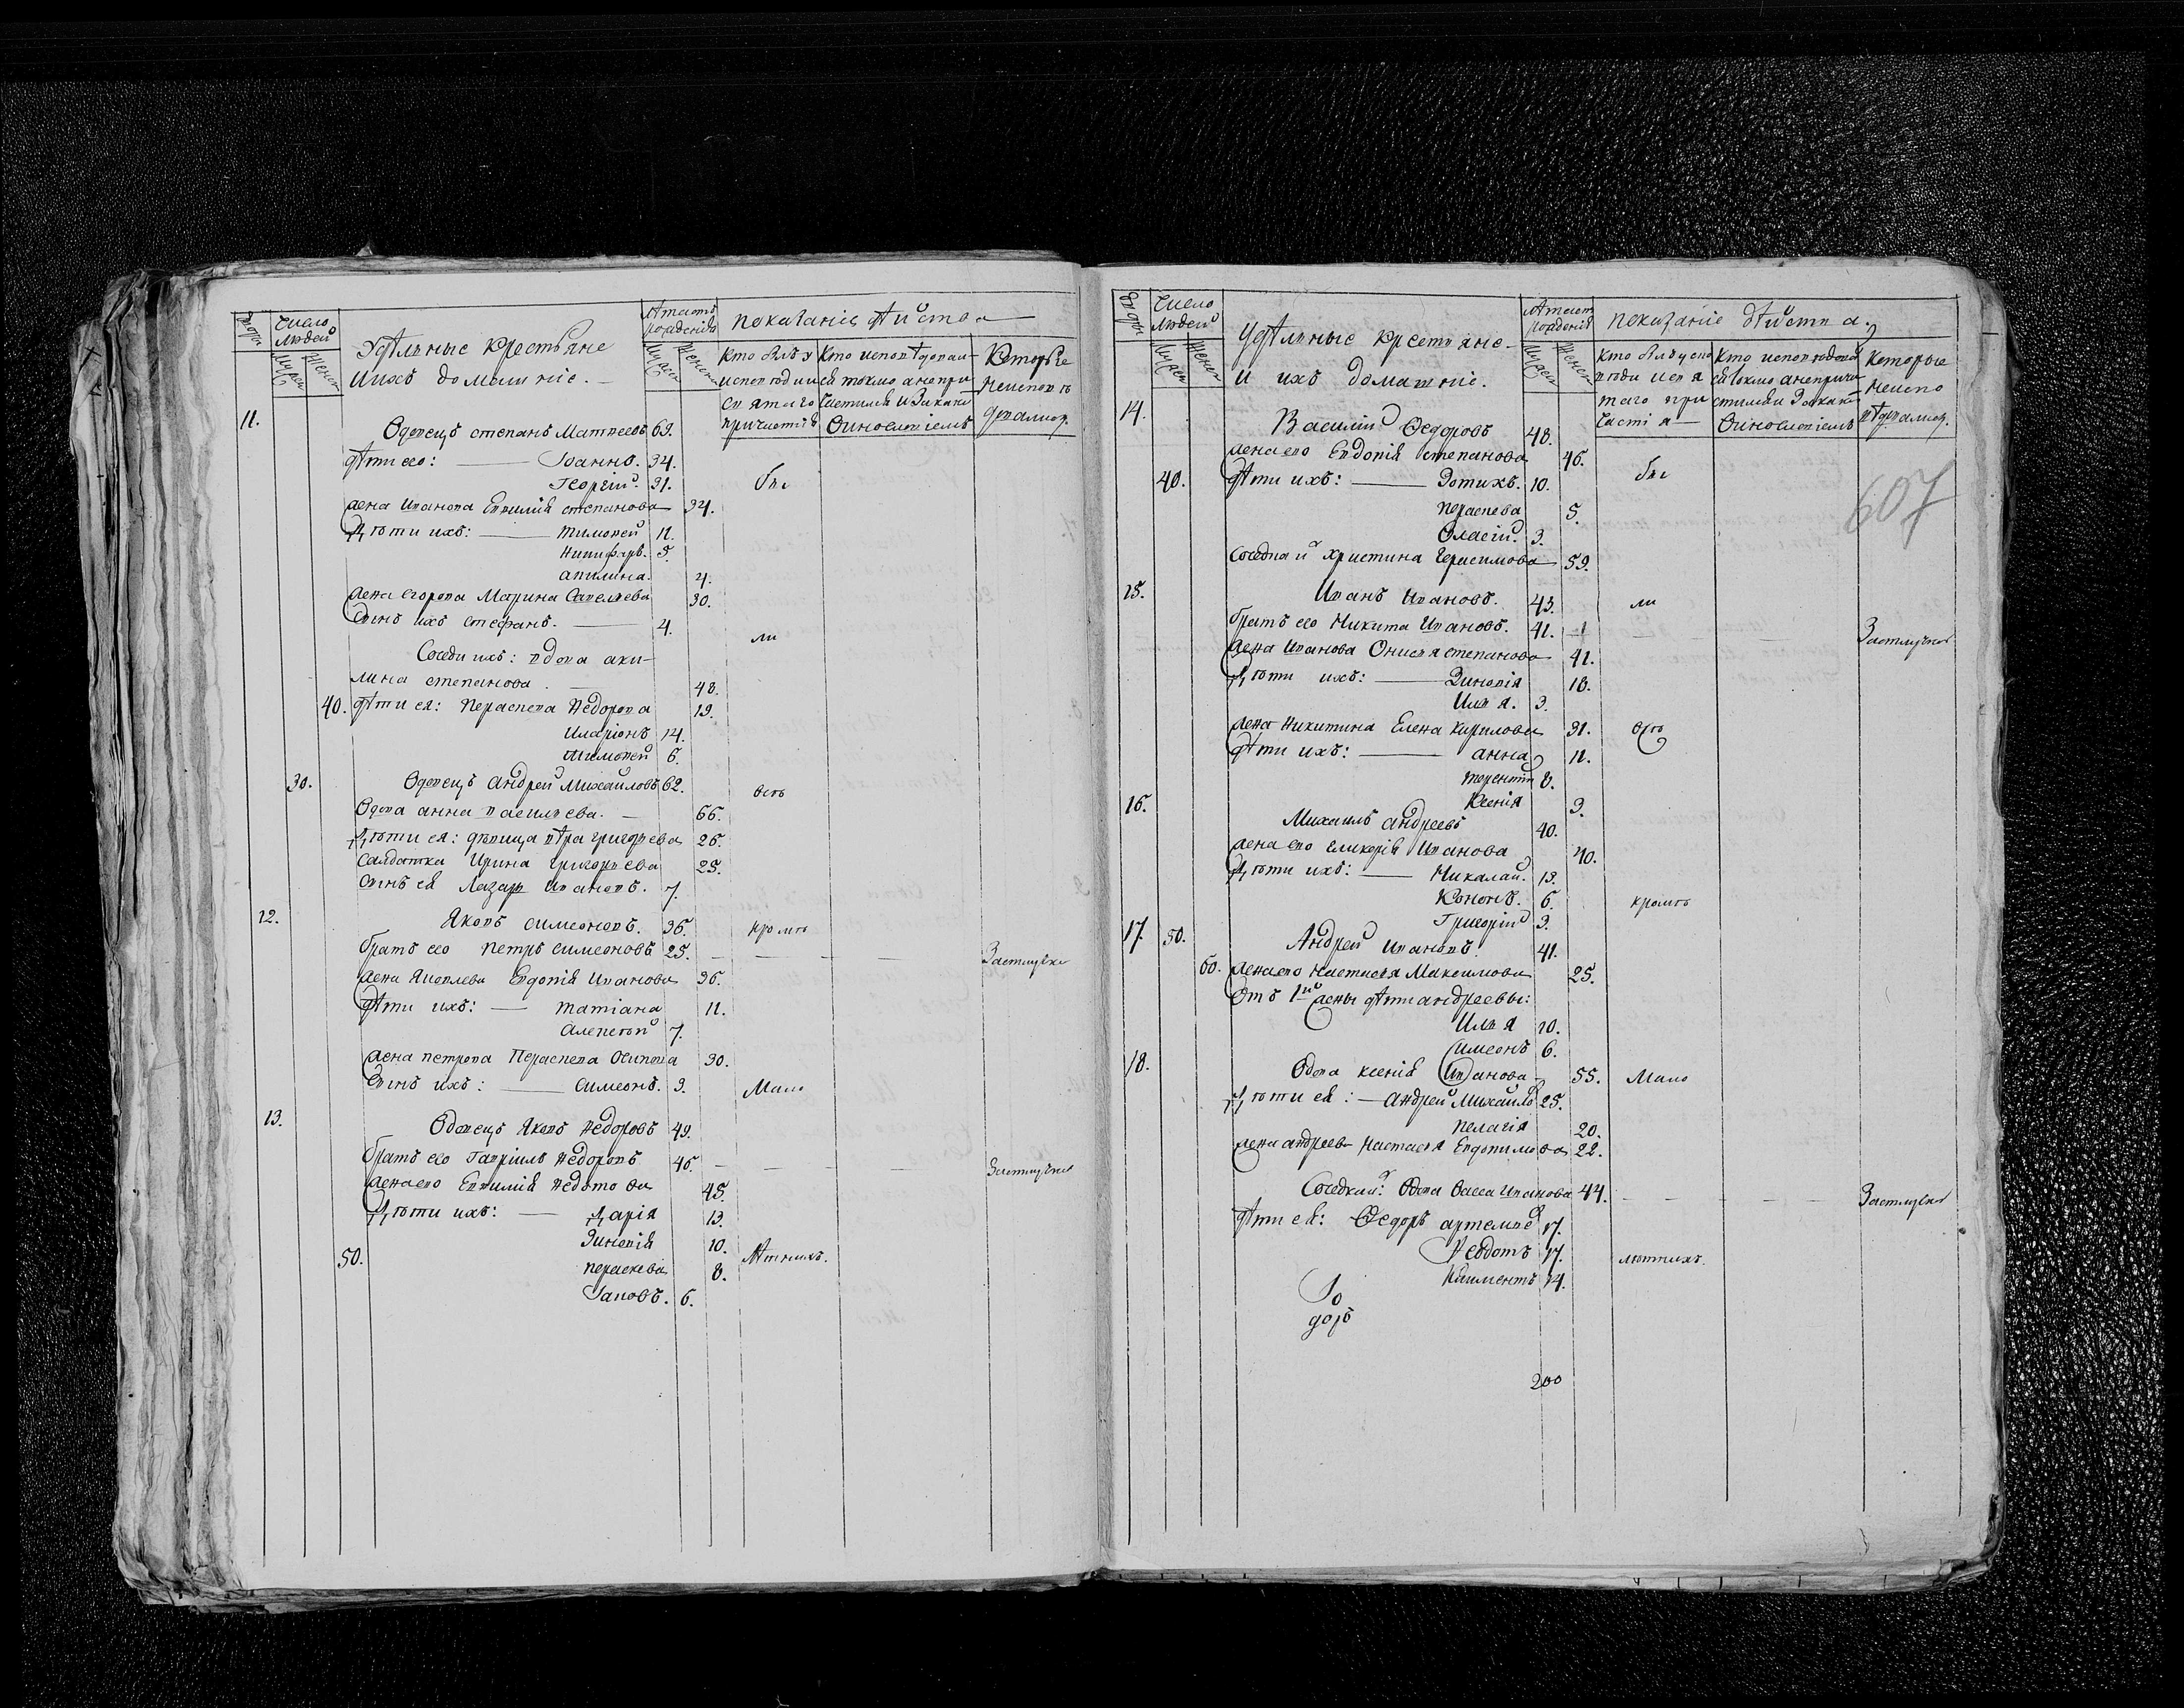 Дворы
Число людей
Мужеск
Женск
Удѣльные крестьяне
и ихъ домашніе.
Лѣта отъ рожденія
Мужеск
Женск
Показаніе дѣйства
Кто былъ у исповѣди и святаго причастія
Кто исповѣдовался токмо а не причастился и за какимъ винословіемъ
Которые не исповѣдовались
11.
Вдовецъ Степанъ Матвеевъ 63.
дѣти его: Іоаннъ. 34.
Георгій. 31.
бы
жена Иванова Евѳимія Степанова 34.
Дѣти ихъ: Тимоѳей 11.
Никифоръ. 5.
Акилина. 4.
жена Егорова Марина Савельева 30.
Сынъ ихъ Стефанъ. 4.
ли
Соседи ихъ: вдова Аки-
лина Степанова. 48.
40. дѣти ея: Пераскева Ѳедорова 19.
Иларіонъ 14.
Тимоѳей 6.
30. Вдовецъ Андрей Михайловъ 62.
Всѣ
Вдова Анна Васильева. 66.
Дѣти ея: дѣвица Вѣра Григорьева 26.
Салдатка Ирина Григорьева 25.
Сынъ ея Лазарь Ивановъ. 7.
12. Яковъ Симеоновъ. 36.
кромѣ
братъ его Петръ Симеоновъ 25. Заотлучкою
жена Яковлева Евдокія Иванова 36.
дѣти ихъ: Татіана 11.
Алексѣй 7.
жена Петрова Пераскева Осипова 30.
Сынъ ихъ: Симеонъ. 3.
Мало
13. Вдовецъ Яковъ Ѳедоровъ 49.
братъ его Гавріилъ Ѳедоровъ 46. Заотлучкою
жена его Евѳимія Ѳедотова 45.
Дѣти ихъ: Дарія 13.
Зиновія 10.
Лѣтнихъ.
50. Пераскева 8.
Іаковъ. 6.
Дворы
Число людей
Мужеск
Женск
Удѣльные крестьяне
и ихъ домашніе.
Лѣта отъ рожденія
Мужеск
Женск
Показаніе дѣйства
Кто былъ у исповѣди и святаго причастія
Кто исповѣдовался токмо а не причастился и за какимъ винословіемъ
Которые не исповѣдовались
607
14. Василій Ѳедоровъ 48.
жена его Евдокія Степанова 46.
40. дѣти ихъ: Фотихъ. 10.
бы
Пераскева 5.
Власій. 3.
Соседка ихъ Христина Герасимова 59.
15. Иванъ Ивановъ. 43.
ли
братъ его Никита Ивановъ. 41. Заотлучкою
жена Иванова Онисья Степанова 41.
Дѣти ихъ: Зиновія 18.
Илья. 3.
жена Никитина Елена Кирилова 31.
Всѣ
дѣти ихъ: Анна 11.
Терентій 8.
Ксенія 3.
16. Михаилъ Андреевъ 40.
жена его Гликерія Иванова 40.
Дѣти ихъ: Николай. 13.
Кононъ. 6.
кромѣ
Григорій 3.
17. 50. Андрей Ивановъ. 41.
60. жена его Настасья Максимова 25.
Отъ 1й жены дѣти Андреевы:
Илья 10.
Симеонъ 6.
18. Вдова Ксенія Иванова 55.
Мало
Дѣти ея: Андрей Михайловъ 25.
Пелагія 20.
жена Андреева Настасья Евдокимова 22.
Соседка ихъ: вдова Васса Иванова 44. Заотлучкою
дѣти ея: Ѳедоръ Артемьевъ 17.
Ѳедотъ 17.
лѣтнихъ.
Климентъ 14.
200